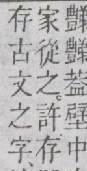 葢壁中
家從之。許存
存古文之字